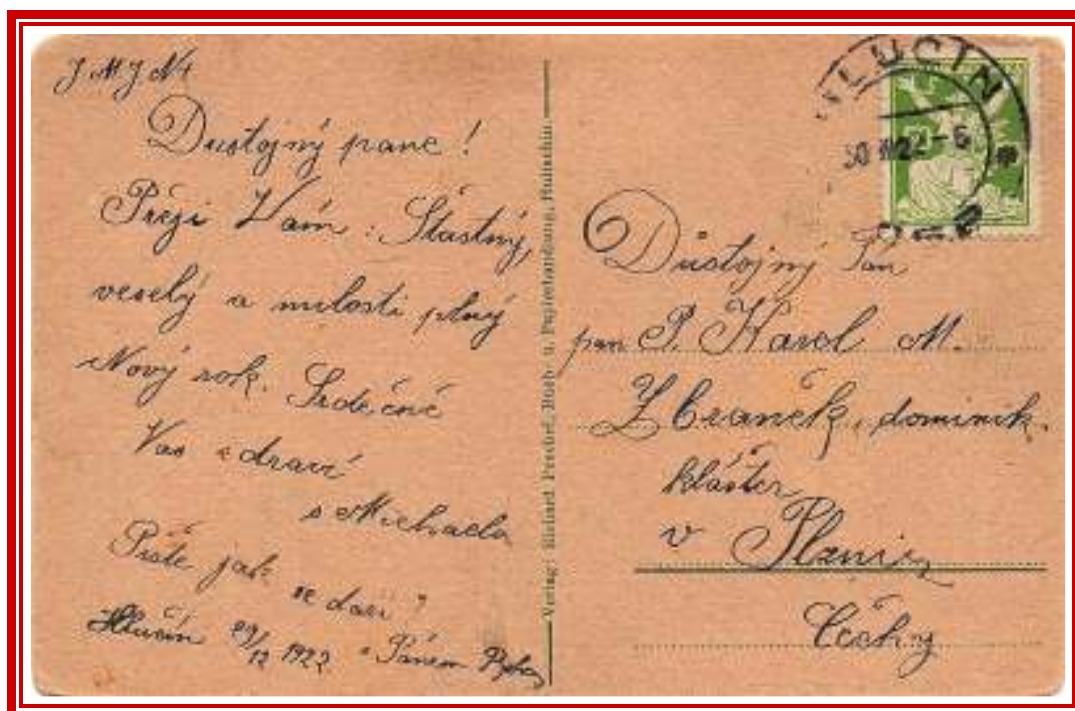 J M J
Dustojný pane!
Přeji Vám: Šťastný,
veselý a milosti plný
Nový rok. Srdečně
Vas zdraví
s Michaela
Pište jak
se daří?
Hlučín 29/12 1922.
Verlag: Buch- u. Papierhandlung, Hultschin
HLUČÍN
22-6
Dústojný Pán
pan P. Karel M.
Zbraněk, dominik.
klášter
v Plzni
Čechy